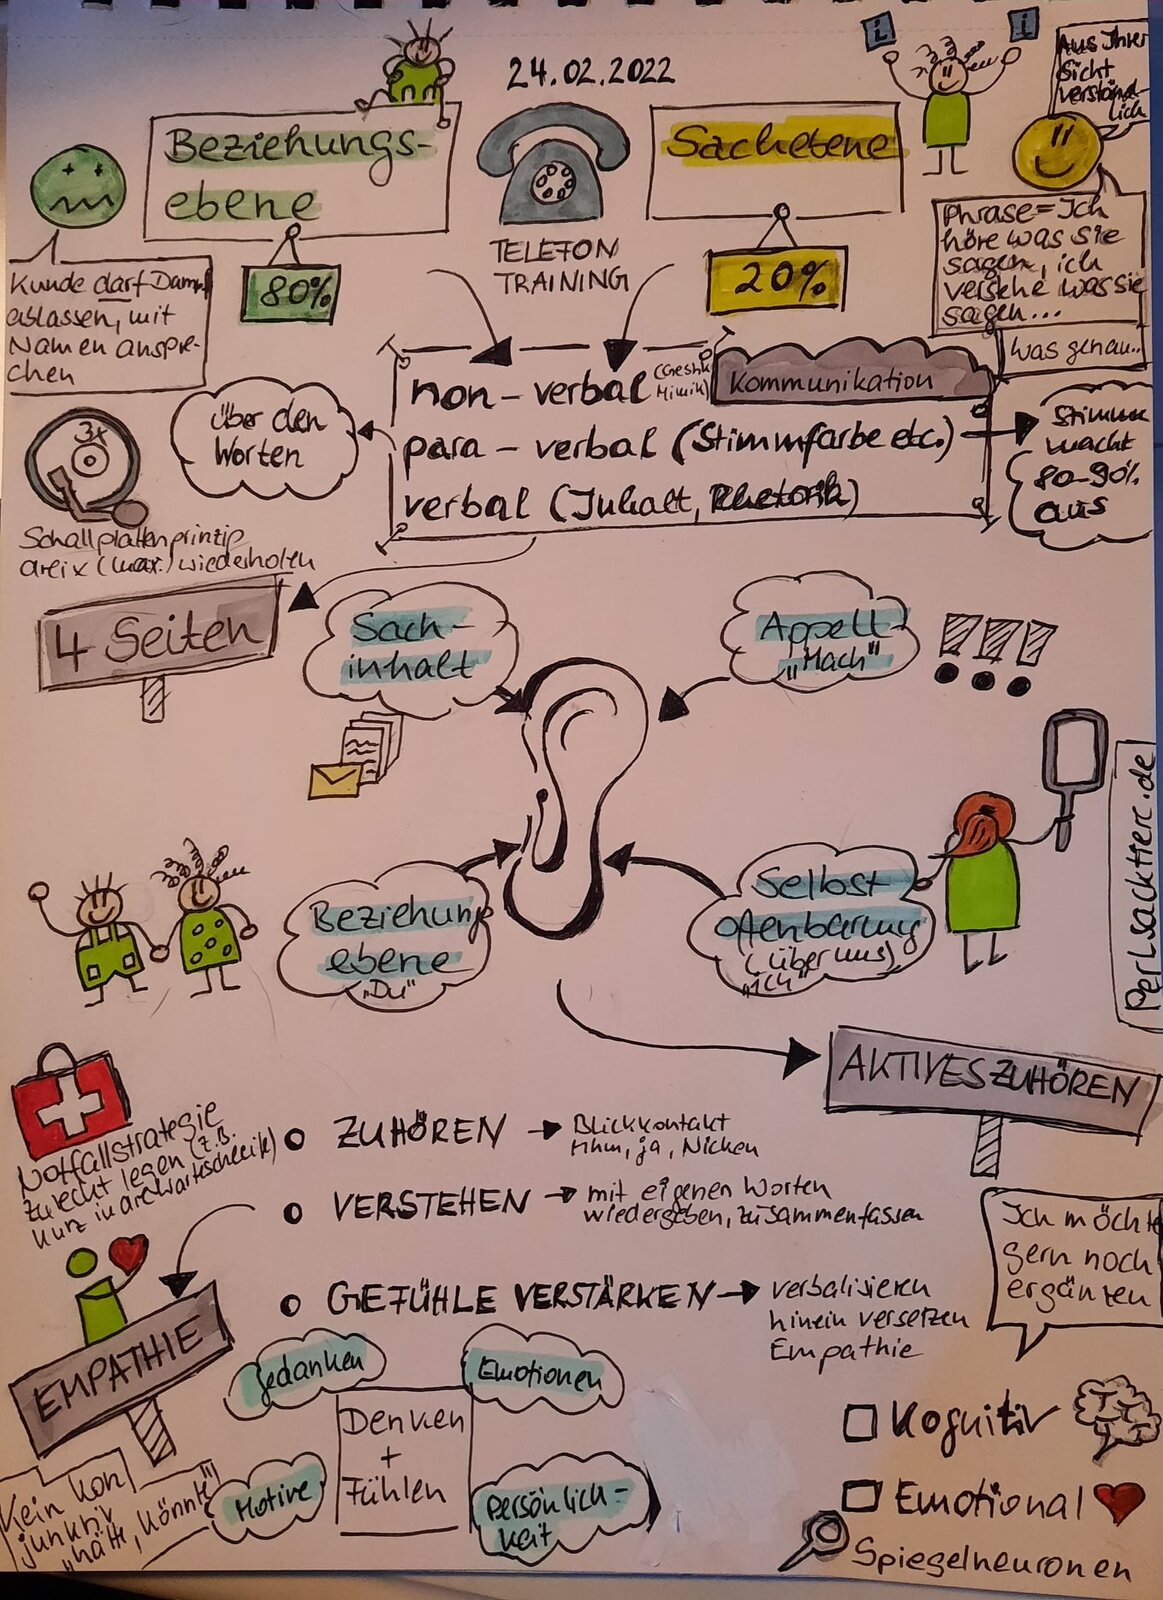 24.02.2022
Beziehungs-
ebene
80%
TELEFON
TRAINING
Sachebene
20%
i
i
Aus Ihrer
Sicht
verständ-
lich
Phrase = Ich
höre was sie
sagen, ich
verstehe was sie
sagen...
was genau...
Kunde darf Dampf
ablassen, mit
Namen anspre-
chen
non - verbal (Gestik
Mimik)
Kommunikation
para - verbal (Stimmfarbe etc.)
verbal (Inhalt, Rhetorik)
über den
Worten
Stimme
macht
80-90%
aus
3x
Schallplattenprinzip
dreix (max.) wiederholen
4 Seiten
Sach-
inhalt
Appell
"Mach"
!!!
Beziehung
ebene
"Du"
Selbst
offenbarung
(über uns)
"Ich"
Perlsacktier.de
AKTIVES ZUHÖREN
Notfallstrategie
zurecht legen (z.B.
kurz in die Warteschleife)
• ZUHÖREN → Blickkontakt
Mhm, ja, Nicken
• VERSTEHEN → mit eigenen Worten
wiedergeben, zusammenfassen
• GEFÜHLE VERSTÄRKEN → verbalisieren
hinein versetzen
Empathie
Ich möchte
gern noch
ergänzen
EMPATHIE
Gedanken
Emotionen
Denken
+
Fühlen
Motive
Persönlich-
keit
Kein Kon
junktiv
"hätte, könnte"
Kognitiv
Emotional
Spiegelneuronen